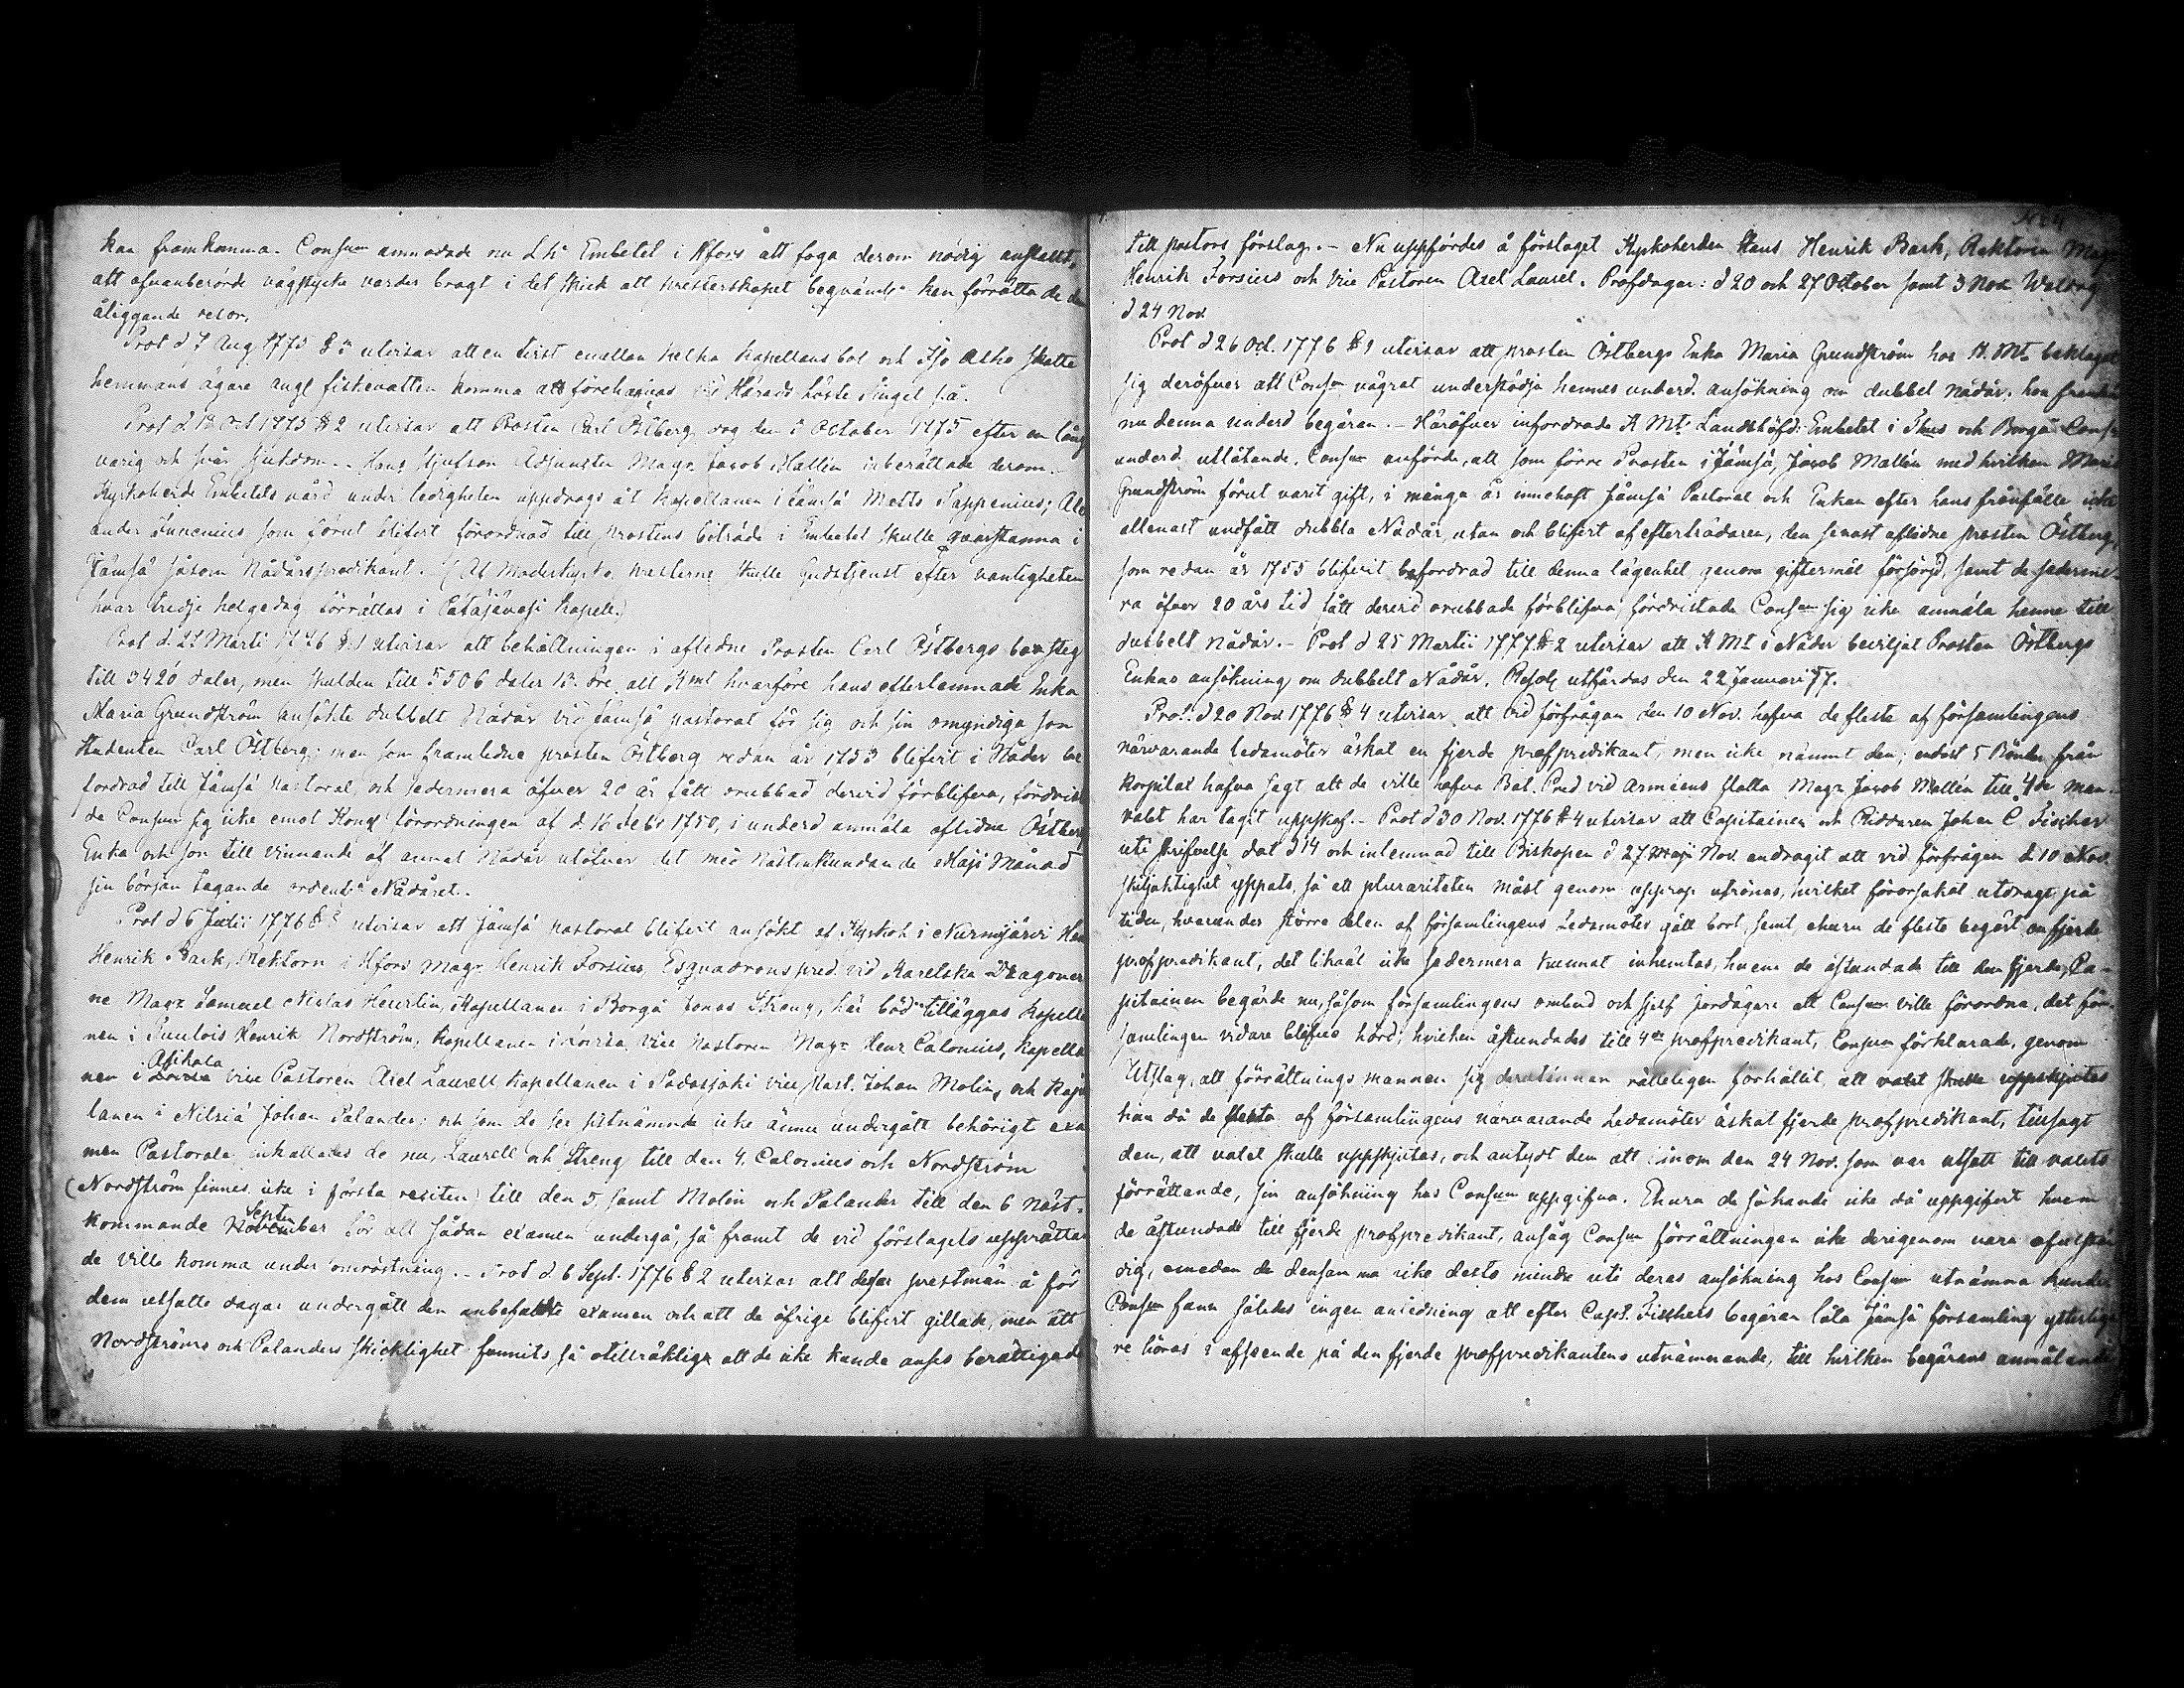 kan framkomma. Consm anmodade nu Lhs Embetet i Hfors att foga derom nödig anstallt,
att ofvanberörde vägstycke varder bragt i det skick att presterskapet beqvämln kan förrätta de dem
åliggande resor.
Prot d 7 Aug 1775 § utvisar att en tvist emellan Kapellans bol och Iso Alho skatte
hemmans ägare angl fiskevatten komma att förehafvas vid Härads Höste Tinget
Prot d Oct 1775 § 2 utvisar att Prosten Carl Östberg dog den October 1775 efter en lång
varig och svår sjukdom. Hans styfson Adjuncten Magr Jacob Mallén inberättade derom.
Kyrkoherde Embetets vård under ledigheten uppdrogs åt Kapellanen i Jämsä Matts Tappenius; Alex
ander Juncenius som förut blifvit förordnad till prostens biträde i Embetet skulle qvarstanna i
Jämsä såsom Nådårspredikant. (Af Moderkyrko presterne skulle Gudstjenst efter vanligheten
hvar tredje helgedag förrättas i Petäjävesi Kapell.)
Prot d 21 Marti 1776 § 1 utvisar att behållningen i aflidne Prosten Carl Östbergs bo steg
till 3420 daler, men skulden till 5506 daler 13 öre allt Kmt hvarföre hans efterlemnade Enka
Maria Grundström ansökte dubbelt Nådår vid Jämsä pastorat för sig och sin omyndiga son
Studenten Carl Östberg; men som framledne prosten Östberg redan år 1753 blifvit i Nåder be
fordrad till Jämsä Pastorat, och sedermera öfver 20 år fått orubbad dervid förblifva, fördrista
de Consm sig icke emot Kongl förordningen af d. 16 Febr 1750, i underd anmäla aflidne Östberg
Enka och son till vinnande af annat Nådår utöfver det med nästinstundande Maji Månad
sin början tagande ordentl Nådåret.
Prot d 6 Julii 1776 § utvisar att Jämsä pastorat blifvit ansökt af Kyrkoh i Nurmijärvi Hans
Henrik Bark, Rektorn i Hfors Magr Henrik Forsius, Esquadronspred. vid Karelska Dragoner
ne Magr Samuel Niclas Heurlin, Kapellanen i Borgå Jonas Streng, här böd tilläggas Kapella
nen i Tuulois Henrik Nordström, Kapellanen i Lovisa Vice Pastoren Magr Henr Calonius, Kapella
Asikkala
nen i Lovisa vice Pastoren Axel Laurell Kapellanen i Padasjoki vice Past. Johan Molin, och Kapel
lanen i Nilsiä Johan Palander; och som de sex sistnämnde icke ännu undergått behörigt exa
men Pastorale inkallades de nu, Laurell och Streng till den 4. Calonius och Nordström
(Nordström finnes icke i första resiten) till den 5. samt Molin och Palander till den 6 näst-
Septem
kommande November för att sådan examen undergå, så framt de vid förslagets upprättan
de ville komma under omröstning. – Prot d. 6 Sept. 1776 § 2 utvisar att desse prestmän å för
dem utsatte dagar undergått den anbefallte examen och att de öfrige blifvit gillade, men att
Nordströms och Palanders skicklighet funnits så otillräcklig att de icke kunde anses berättigade
till pastors förslag. – Nu uppfördes å förslaget Kyrkoherden Hans Henrik Bark, Rektorn Magr
Henrik Forsius och Vice Pastoren Axel Laurel. Profdagar: d 20 och 27 October samt 3 Nov. Waldag
d 24 Nov.
Prot d 26 Oct. 1776 § 9 utvisar att prosten Östbergs Enka Maria Grundström hos K. Mt beklagat
sig deröfver att Consm vägrat understödja hennes underd. ansökning om dubbel nådår; hon
nu denna underd begäran. – Häröfver infordrade K Mts Landshöfd: Embetet i Thus och Borgå Consm
underd utlåtande. Consm anförde, att som förre Prosten i Jämsä, Jacob Mallén med hvilken Maria
Grundström förut varit gift, i många år innehaft Jämsä Pastorat och Enkan efter hans frånfälle icke
allenast undfått dubbla Nådår, utan och blifvit af efterträdaren, den senast aflidne prosten Östberg,
som redan år 1755 blifvit befordrad till denna lägenhet genom giftermål försörjd, samt de sederme-
ra öfver 20 års tid fått dervid orubbade förblifva, fördristade Consm sig icke anmäla henne till
dubbelt nådår. – Prot d 25 Martii 1777 § 2 utvisar att K Mt i Nåder beviljat Prosten Östbergs
Enkas ansökning om dubbelt Nådår. Resol. utfärdas den 22 Januari 77.
Prot. d 20 Nov 1776 § 4 utvisar att vid förfrågan den 10 Nov. hafva de fleste af församlingens
närvarande ledamöter äskat en fjerde profpredikant, men icke nämnt den; endast 5 Bönder från
Korpilax hafva sagt att de ville hafva Bat. Pred vid Arméens flotta Magr Jacob Mallén till 4de man.
valet har tagit uppskof. – Prot d 30 Nov. 1776 § 4 utvisar att Capitainen och Riddaren Johan C. Fischer
uti skrifvelse dat d 14 och inlemnad till Biskopen d 27 Maji Nov. andragit att vid förfrågan d. 10 Nov.
skiljaktighet yppats, så att pluraliteten måst genom upprop utrönas, hvilket förorsakat utdrägt på
tiden, hvarunder större delen af församlingens Ledamöter gått bort, samt, ehuru de fleste begärt en fjerde
profpredikant, det likväl icke sedermera kunnat inhemtas, hvem de åstundade till den fjerde; Ca-
pitainen begärde nu, såsom församlingens ombud och sjelf jordägare att Consm ville förordna, det för
samlingen vidare blefve hörd; hvilken åstundades till 4de profpredikant, Consm förklarade, genom
Utslag, att förrättnings mannen sig derutinnan rätteligen förhållit, att valet skulle uppskjutas
han då de flesta af församlingens närvarande Ledamöter äskat fjerde profpredikant, tillsagt
dem, att valet skulle uppskjutas, och antydt dem att innom den 24 Nov. som var utsatt till valets
förrättande, sin ansökning hos Consm uppgifva. Ehuru de sökande icke då uppgifvit hvem
de åstundade till fjerde profpredikant, ansåg Consm förrättningen icke derigenom vara ofullstän
dig, emedan de densamma icke desto mindre uti deras ansökning hos Consm utnämna kunde.
Consm fann således ingen anledning att efter Capt. Fischers begäran låta Jämsä församling ytterliga
re höras i afseende på den fjerde profpredikantens utnämnande, till hvilken begärans anmälande